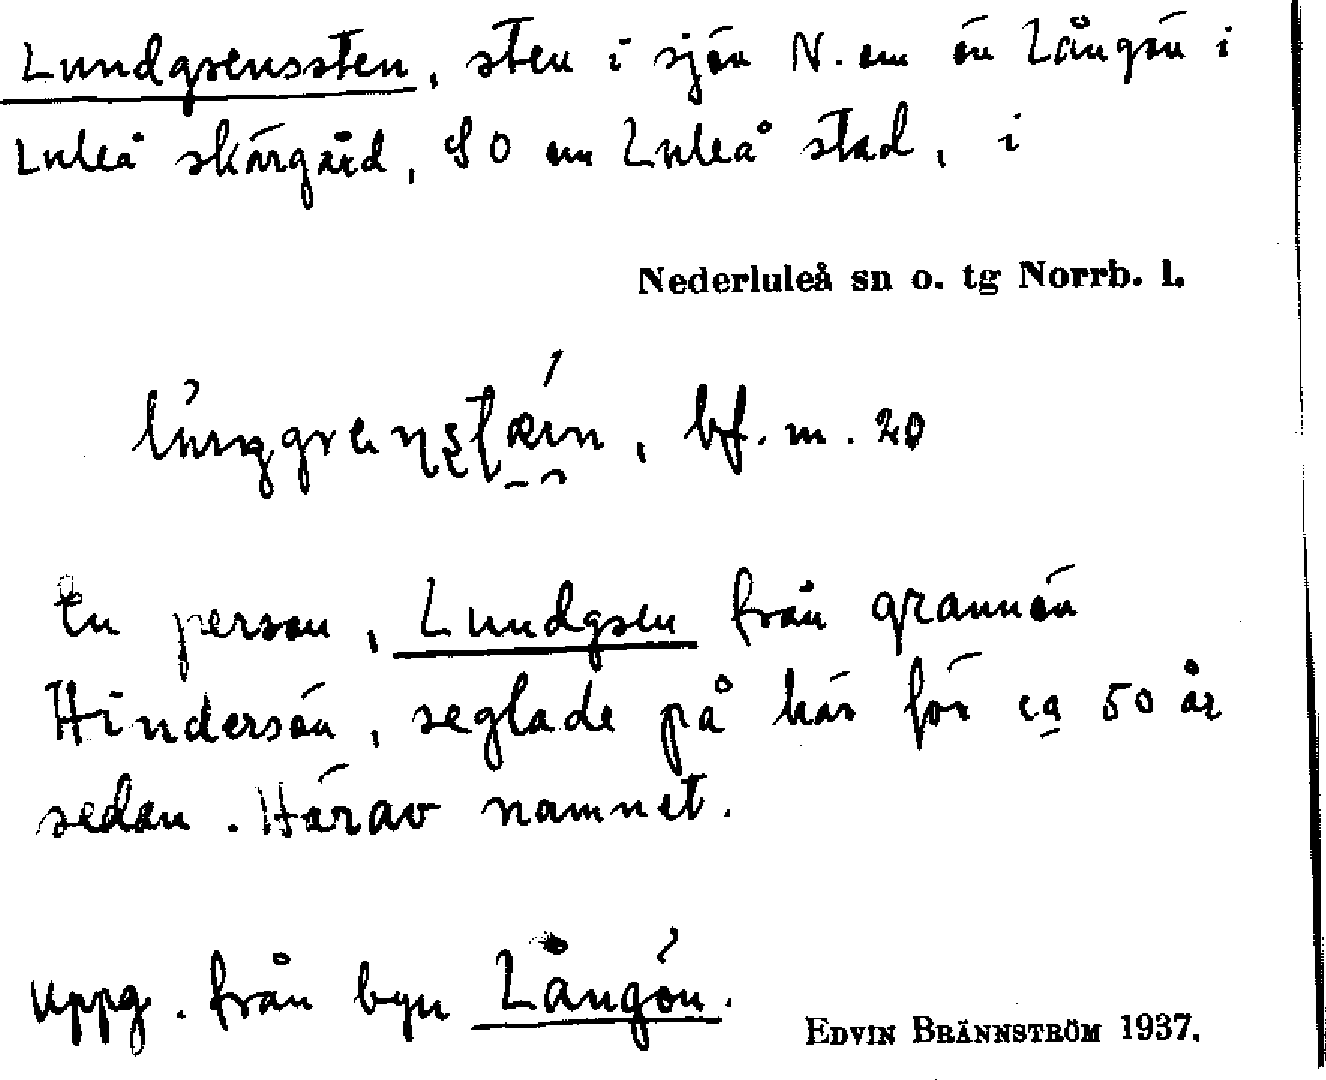 Lundgrenssten, sten i sjön N. om ön Långön i
Luleå skärgård, SO om Luleå stad, i
Nederluleå sn o. tg Norrb. l.
bf. m. 20
En person, Lundgren från grannön
Hindersön, seglade på här för ca 50 år
sedan. Härav namnet.
Uppg. från byn Långön.
EDVIN BRÄNNSTRÖM 1937.